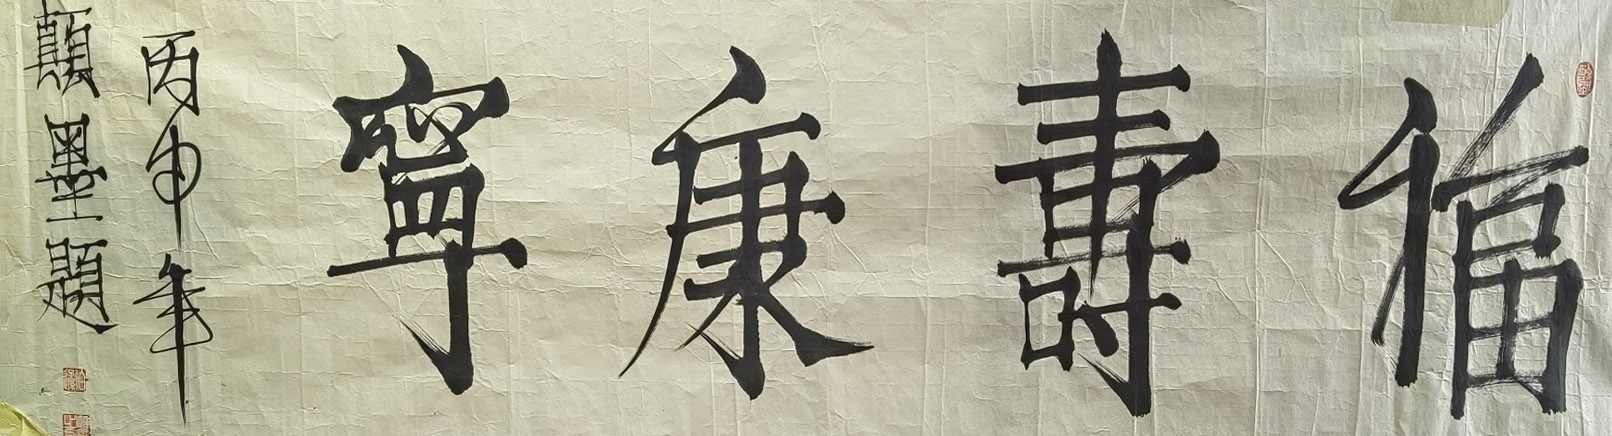 福壽康寧
丙申年
顛墨題